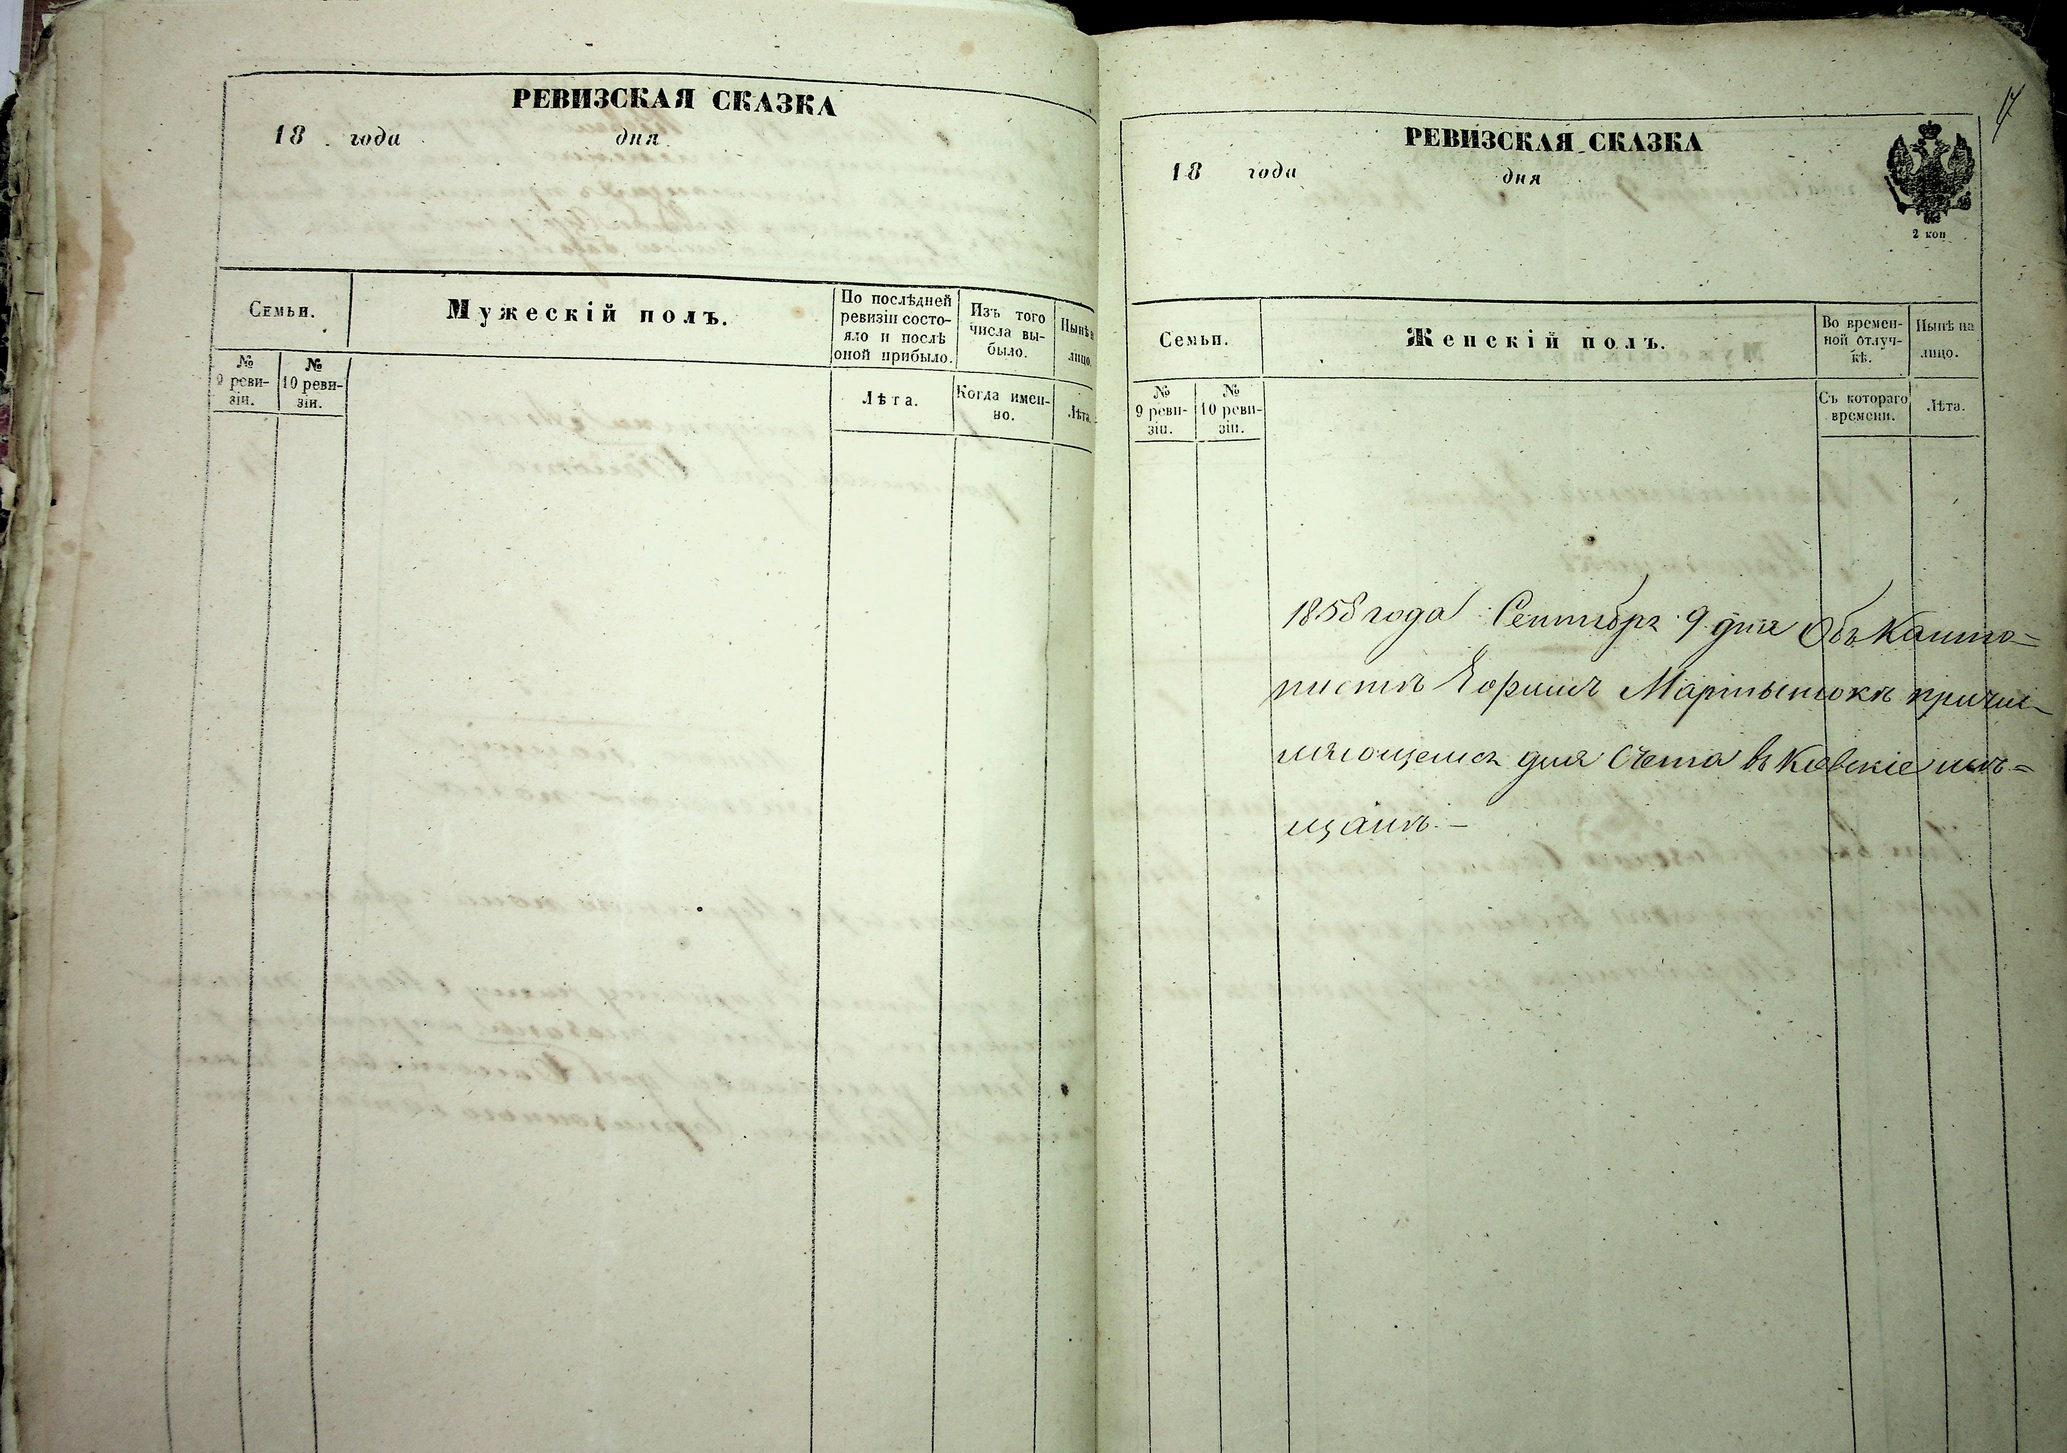 РЕВИЗСКАЯ СКАЗКА
18 года дня
Семьи.
Мужескій полъ.
По послѣдней
ревизіи состо-
яло и послѣ
оной прибыло.
Изъ того
числа вы-
было.
Нынѣ на
лицо.
№
9 реви-
зіи.
№
10 реви-
зіи.
Лѣта.
Когда имен-
но.
Лѣта.
17
РЕВИЗСКАЯ СКАЗКА
18 года дня
2 коп
Семьи.
Женскій полъ.
Во времен-
ной отлуч-
кѣ.
Нынѣ на
лицо.
№
9 реви-
зіи.
№
10 реви-
зіи.
Съ котораго
времени.
Лѣта.
1858 года Сентябрь 9 дня Объ Канто-
нистѣ Мартынюкѣ причи-
для Счета въ Кіевскіе мѣ-
щане.